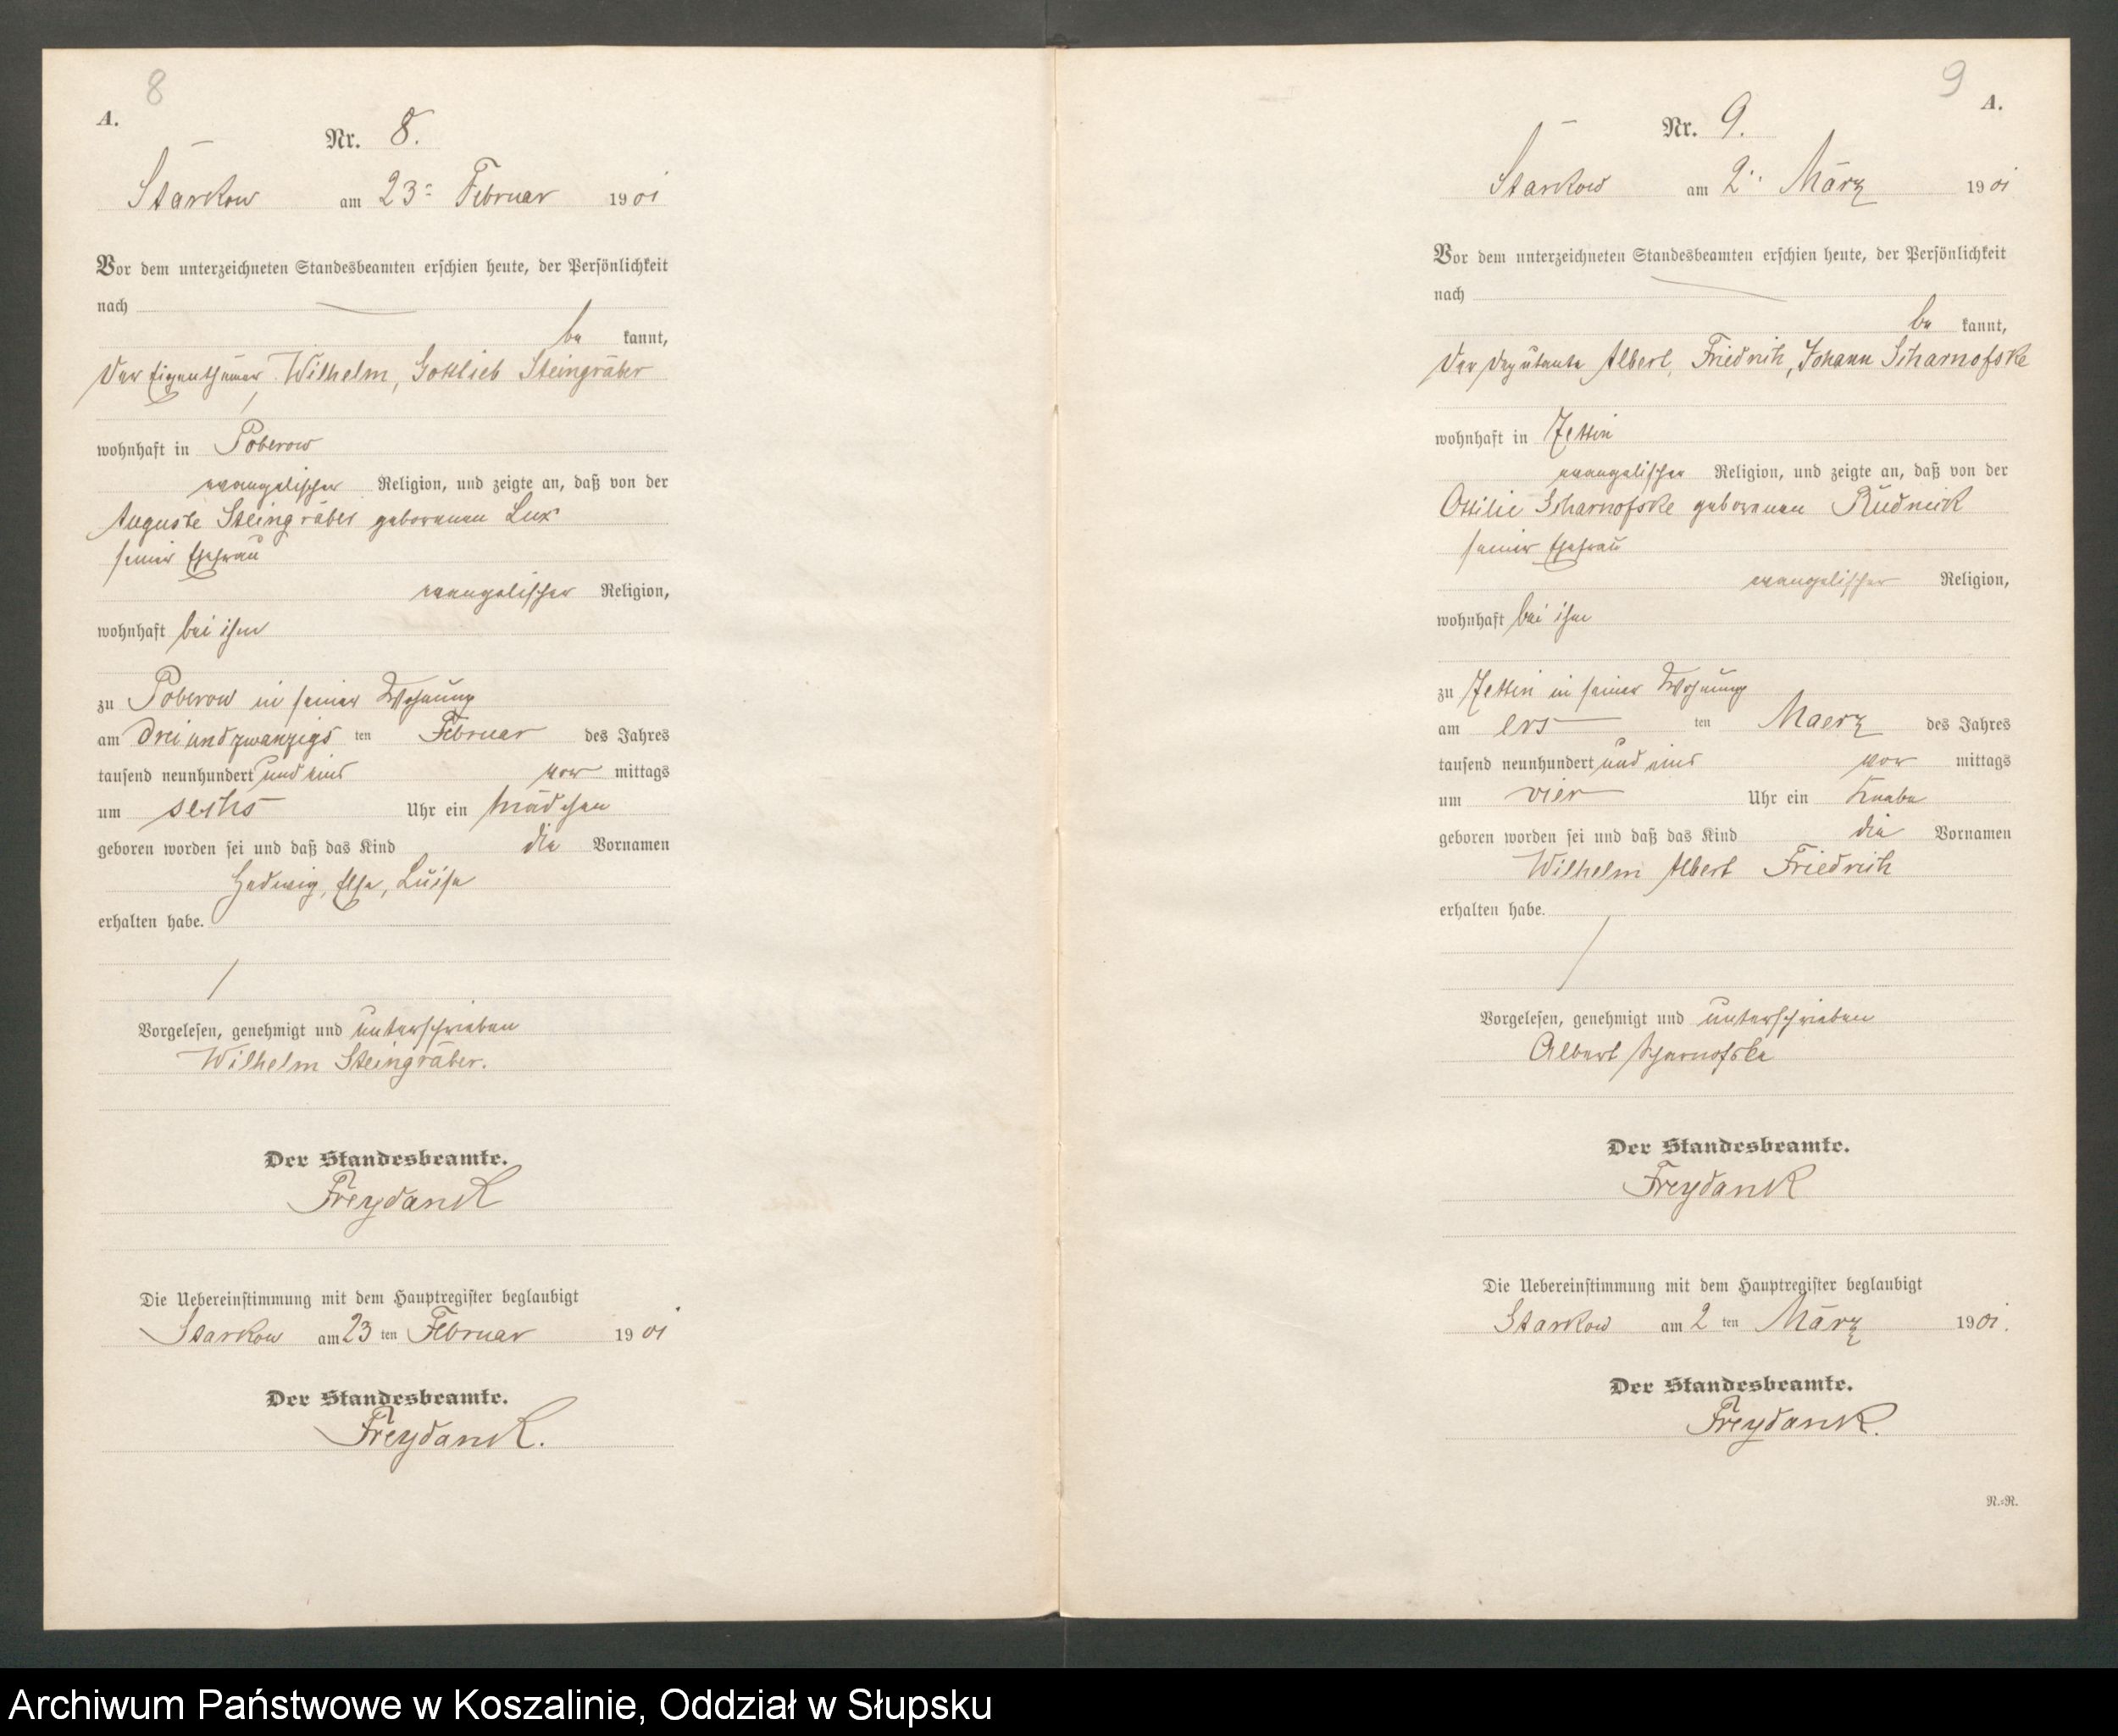 8
A.
Nr. 8.
Starkow am 23ᵗ Februar 1901
Vor dem unterzeichneten Standesbeamten erschien heute, der Persönlichkeit
nach
be kannt,
der Eigenthümer Wilhelm, Gottlieb Steingräber
wohnhaft in Poberow
evangelischer Religion, und zeigte an, daß von der
Auguste Steingräber geborenen Lux
seiner Ehefrau
evangelischer Religion,
wohnhaft bei ihm
zu Poberow in seiner Wohnung
am dreiundzwanzigs ten Februar des Jahres
tausend neunhundert und eins vor mittags
um sechs Uhr ein Mädchen
geboren worden sei und daß das Kind die Vornamen
Hedwig, Elsa, Luise
erhalten habe.
Vorgelesen, genehmigt und unterschrieben
Wilhelm Steingräber.
Der Standesbeamte.
Freydank
Die Uebereinstimmung mit dem Hauptregister beglaubigt
Starkow am 23 ten Februar 1901
Der Standesbeamte.
Freydank.
9
A.
Nr. 9.
Starkow am 2ᵗ März 1901
Vor dem unterzeichneten Standesbeamten erschien heute, der Persönlichkeit
nach
be kannt,
der Deputante Albert, Friedrich, Johann Scharnofske
wohnhaft in
evangelischer Religion, und zeigte an, daß von der
Ottilie Scharnofske geborenen Rudnick
seiner Ehefrau
evangelischer Religion,
wohnhaft bei ihm
zu in seiner Wohnung
am ers ten Maerz des Jahres
tausend neunhundert und eins vor mittags
um vier Uhr ein Knabe
geboren worden sei und daß das Kind die Vornamen
Wilhelm Albert Friedrich
erhalten habe.
Vorgelesen, genehmigt und unterschrieben
Albert Scharnofske
Der Standesbeamte.
Freydank
Die Uebereinstimmung mit dem Hauptregister beglaubigt
Starkow am 2 ten März 1901.
Der Standesbeamte.
Freydank.
N.=R.
Archiwum Państwowe w Koszalinie, Oddział w Słupsku